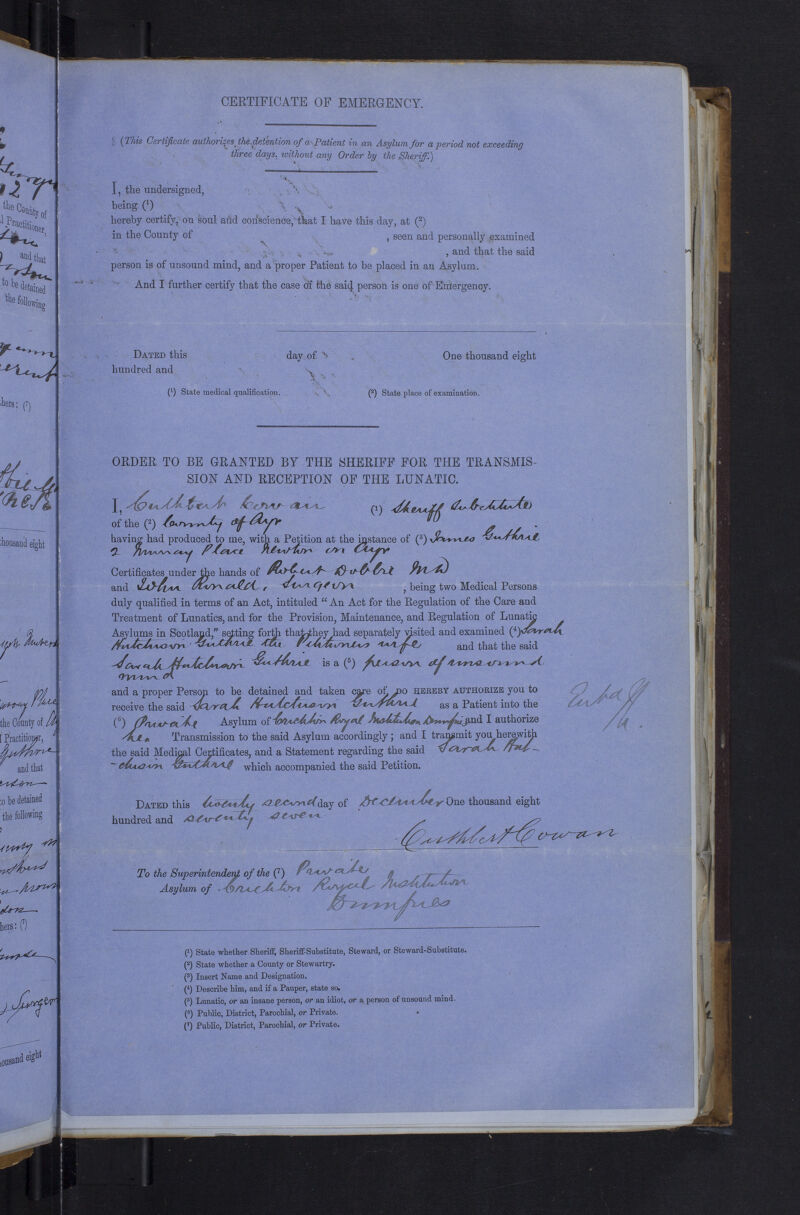 CERTIFICATE OF EMERGENCY.
(This Certificate authorizes the detention of a Patient in an Asylum for a period not exceeding
three days, without any Order by the Sheriff.)
I, the undersigned,
being (¹)
hereby certify, on soul and conscience, that I have this day, at (²)
in the County of , seen and personally examined
, and that the said
person is of unsound mind, and a proper Patient to be placed in an Asylum.
And I further certify that the case of the said person is one of Emergency.
DATED this day of One thousand eight
hundred and
(¹) State medical qualification. (²) State place of examination.
ORDER TO BE GRANTED BY THE SHERIFF FOR THE TRANSMIS-
SION AND RECEPTION OF THE LUNATIC.
I, Cuthbert Cowan (¹) Sheriff Substitute
of the (²) County of Ayr
having had produced to me, with a Petition at the instance of (³) James Guthrie
2 Murray Place Newton on Ayr
Certificates under the hands of Robert Dobbie MD
and John Ronald, Surgeon , being two Medical Persons
duly qualified in terms of an Act, intituled “An Act for the Regulation of the Care and
Treatment of Lunatics, and for the Provision, Maintenance, and Regulation of Lunatic
Asylums in Scotland,” setting forth that they had separately visited and examined (⁴) Sarah
Hutchison Guthrie the Petitioners wife and that the said
Sarah Hutchison Guthrie is a (⁵) person of unsound
mind
and a proper Person to be detained and taken care of, DO HEREBY AUTHORIZE you to
receive the said Sarah Hutchison Guthrie as a Patient into the
(⁶) Private Asylum of Crichton Royal Institution Dumfries and I authorize
her Transmission to the said Asylum accordingly; and I transmit you herewith
the said Medical Certificates, and a Statement regarding the said Sarah Hut-
-chison Guthrie which accompanied the said Petition.
DATED this twenty second day of December One thousand eight
hundred and seventy seven
Cuthbert Cowan
To the Superintendent of the (⁷) Private
Asylum of Crichton Royal Institution
Dumfries
(¹) State whether Sheriff, Sheriff-Substitute, Steward, or Steward-Substitute.
(²) State whether a County or Stewartry.
(³) Insert Name and Designation.
(⁴) Describe him, and if a Pauper, state so.
(⁵) Lunatic, or an insane person, or an idiot, or a person of unsound mind.
(⁶) Public, District, Parochial, or Private.
(⁷) Public, District, Parochial, or Private.
the County of
Practitioner,
and that
to be detained
the following
hers: (¹)
thousand eight
the County of
Practitioner,
and that
to be detained
the following
hers: (¹)
Surgeon
ousand eight